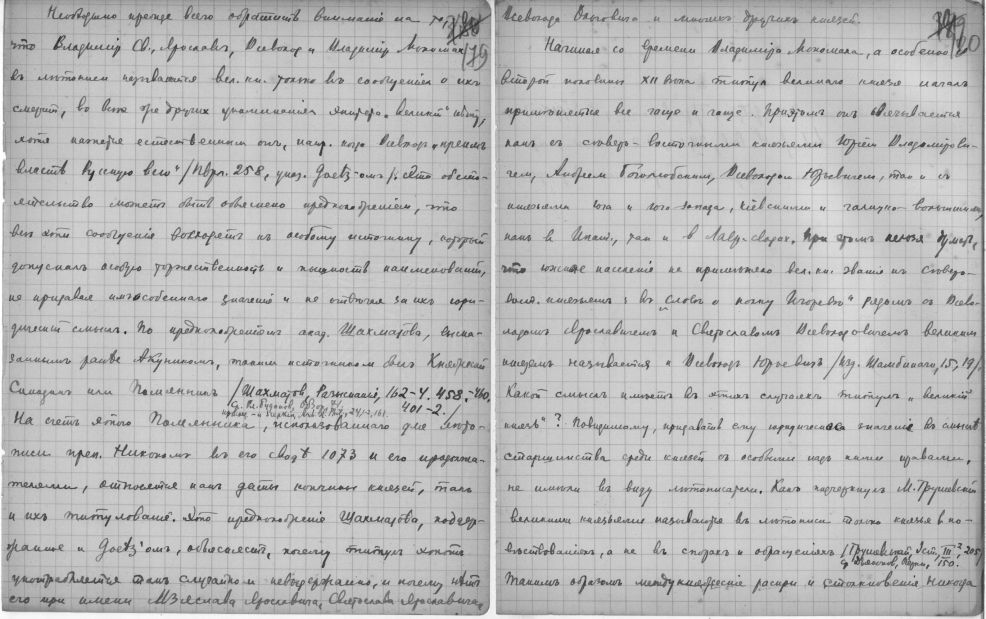 Необходимо прежде всего обратить внимание на то,
79
что Владимір Св., Ярослав, Всеволод и Владимір Мономах
въ лѣтописи называются вел. кн. только въ сообщеніях о ихъ
смерти, во всѣх же других упоминаніях эпитета „великій" нѣт,
хотя кажется естественным он, напр. когда Всеволод „преимъ
власть Русскую всю" /Ипат. 258,
это обсто-
ятельство может быть объяснено предположеніем, что
всѣ эти сообщенія восходят к особому источнику, который
допускал особую торжественность и пышность наименованій,
не придавая им особеннаго значенія и не отвѣчая за их юри-
дическій смысл. По предположенію акад. Шахматова, выска-
занному ранѣе Якуником, таким источником был Княжескій
Синодик или Помянник /Шахматов, Разысканія, 162-4. 458-460,
401-2./
На счет этого Помянника, использованнаго для лѣто-
писи преп. Никоном въ его сводѣ 1073 и его продолжа-
телями, относятся как даты кончины князей, так
и их титулованіе. Это предположеніе Шахматова, поддер-
жанное и Goetz'ом, объясняет, почему титул этот
употребляется так случайно и невыдержанно, и почему нѣт
его при имени Изяслава Ярославича, Святослава Ярославича,
Всеволода Ольговича и многих других князей.
80
Начиная со времени Владиміра Мономаха, а особенно
второй половины XII вѣка титул великаго князя начал
примѣняться все чаще и чаще. При этом он связывается
как с сѣверо-восточными князьями Юріем Владиміови-
чем, Андреем Боголюбским, Всеволодом Юрьевичем, так и с
князьями юга и юго-запада, кіевскими и галицко-волынскими,
как в Ипат., так и в Лавр. сводах. При этом нельзя думать,
что южное населеніе не примѣняло вел. кн. званіе къ сѣверо-
вост. князьям: въ „Словѣ о полку Игоревѣ" рядом с Всево-
лодом Ярославичем и Святославом Всеволодовичем великим
князем называется и Всеволод Юрьевич /изд. Шамбинаго, 15, 19/.
Какой смысл имѣет въ этих случаях титул „великій
князь"? Повидимому, придавать ему юридическое значеніе въ смыслѣ
старшинства среди князей с особыми над ними правами,
не имѣли в виду лѣтописатели. Как подчеркнул М. Грушевскій
великими князьями называются въ лѣтописи только князья в по-
вѣствованіях, а не въ спорах и обращеніях /Грушевскій, Іст., III², 205,
ср. Дьяконов, Очерки, 150.
Таким образом междукняжескіе распри и столкновенія никогда